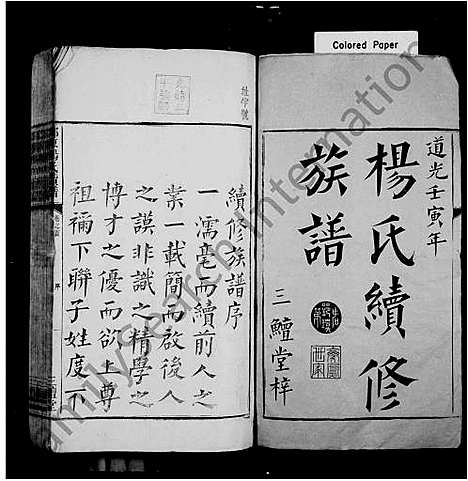 Colored Paper
道光壬寅年
楊氏續修
族譜
三鱣堂梓
續修族譜序
一濡毫而續前人之
業一載簡而啟後人
之謨非識之精學之
博才之優而欲上尊
祖禰下聯子姓度不
序
三鱣堂
FamilySearch International